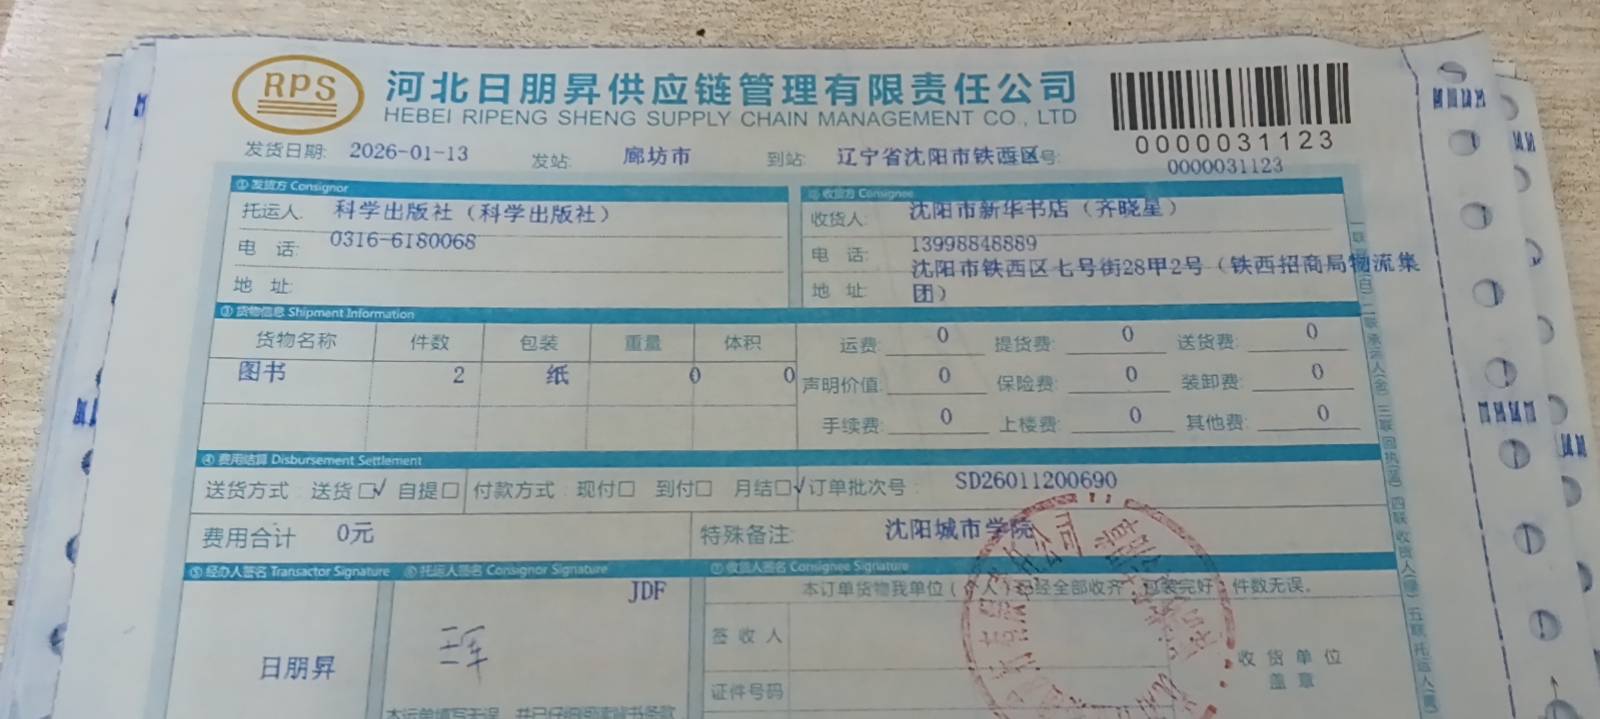 RPS
河北日朋昇供应链管理有限责任公司
HEBEI RIPENG SHENG SUPPLY CHAIN MANAGEMENT CO., LTD
0000031123
发货日期: 2026-01-13 发站: 廊坊市 到站: 辽宁省沈阳市铁西区 号: 0000031123
①发货方 Consignor
托运人: 科学出版社（科学出版社）
电 话: 0316-6180068
地 址:
②收货方 Consignee
收货人: 沈阳市新华书店（齐晓星）
电 话: 13998848889
地 址: 沈阳市铁西区七号街28甲2号（铁西招商局物流集
团）
③货物信息 Shipment Information
货物名称 件数 包装 重量 体积
图书 2 纸 0 0
运费: 0 提货费: 0 送货费: 0
声明价值: 0 保险费: 0 装卸费: 0
手续费: 0 上楼费: 0 其他费: 0
④费用结算 Disbursement Settlement
送货方式: 送货☑ 自提□ 付款方式: 现付□ 到付□ 月结☑ 订单批次号: SD26011200690
费用合计 0元 特殊备注: 沈阳城市学院
⑤经办人签名 Transactor Signature ⑥托运人签名 Consignor Signature ⑦收货人签名 Consignee Signature
日朋昇
JDF
本订单货物我单位（ 人）已经全部收齐，包装完好，件数无误。
签收人
证件号码
收货单位
盖章